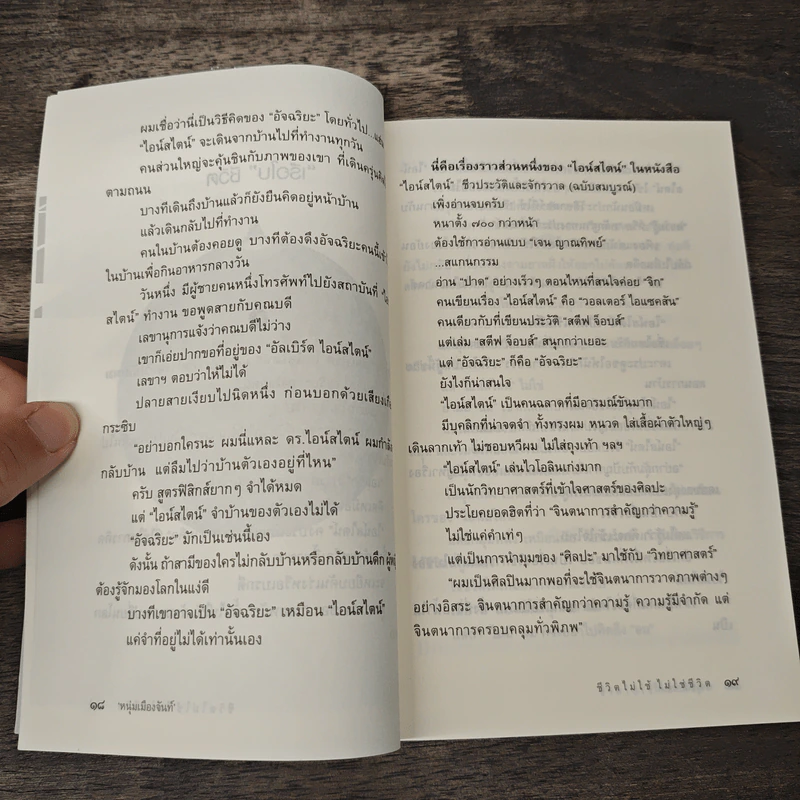 ผมเชื่อว่านี่เป็นวิธีคิดของ “อัจฉริยะ” โดยทั่วไป
“ไอน์สไตน์” จะเดินจากบ้านไปที่ทำงานทุกวัน
คนส่วนใหญ่จะคุ้นชินกับภาพของเขา ที่เดิน
ตามถนน
บางทีเดินถึงบ้านแล้วก็ยังยืนคิดอยู่หน้าบ้าน
แล้วเดินกลับไปที่ทำงาน
คนในบ้านต้องคอยดู บางทีต้องดึงอัจฉริยะคนนี้
ในบ้านเพื่อกินอาหารกลางวัน
วันหนึ่ง มีผู้ชายคนหนึ่งโทรศัพท์ไปยังสถาบันที่
สไตน์” ทำงาน ขอพูดสายกับคณบดี
เลขานุการแจ้งว่าคณบดีไม่ว่าง
เขาก็เอ่ยปากขอที่อยู่ของ “อัลเบิร์ต ไอน์สไตน์”
เลขาฯ ตอบว่าให้ไม่ได้
ปลายสายเงียบไปนิดหนึ่ง ก่อนบอกด้วยเสียง
กระซิบ
“อย่าบอกใครนะ ผมนี่แหละ ดร.ไอน์สไตน์ ผมกำลัง
กลับบ้าน แต่ลืมไปว่าบ้านตัวเองอยู่ที่ไหน”
ครับ สูตรฟิสิกส์ยากๆ จำได้หมด
แต่ “ไอน์สไตน์” จำบ้านของตัวเองไม่ได้
“อัจฉริยะ” มักเป็นเช่นนี้เอง
ดังนั้น ถ้าสามีของใครไม่กลับบ้านหรือกลับบ้านดึก
ต้องรู้จักมองโลกในแง่ดี
บางทีเขาอาจเป็น “อัจฉริยะ” เหมือน “ไอน์สไตน์”
แค่จำที่อยู่ไม่ได้เท่านั้นเอง
๑๘ ‘หนุ่มเมืองจันท์’
นี่คือเรื่องราวส่วนหนึ่งของ “ไอน์สไตน์” ในหนังสือ
“ไอน์สไตน์” ชีวประวัติและจักรวาล (ฉบับสมบูรณ์)
เพิ่งอ่านจบครับ
หนาตั้ง ๗๐๐ กว่าหน้า
ต้องใช้การอ่านแบบ “เจน ญาณทิพย์”
...สแกนกรรม
อ่าน “ปาด” อย่างเร็วๆ ตอนไหนที่สนใจค่อย “จิก”
คนเขียนเรื่อง “ไอน์สไตน์” คือ “วอลเตอร์ ไอแซคสัน”
คนเดียวกับที่เขียนประวัติ “สตีฟ จ็อบส์”
แต่เล่ม “สตีฟ จ็อบส์” สนุกกว่าเยอะ
แต่ “อัจฉริยะ” ก็คือ “อัจฉริยะ”
ยังไงก็น่าสนใจ
“ไอน์สไตน์” เป็นคนฉลาดที่มีอารมณ์ขันมาก
มีบุคลิกที่น่าจดจำ ทั้งทรงผม หนวด ใส่เสื้อผ้าตัวใหญ่ๆ
เดินลากเท้า ไม่ชอบหวีผม ไม่ใส่ถุงเท้า ฯลฯ
“ไอน์สไตน์” เล่นไวโอลินเก่งมาก
เป็นนักวิทยาศาสตร์ที่เข้าใจศาสตร์ของศิลปะ
ประโยคยอดฮิตที่ว่า “จินตนาการสำคัญกว่าความรู้”
ไม่ใช่แค่คำเท่ๆ
แต่เป็นการนำมุมของ “ศิลปะ” มาใช้กับ “วิทยาศาสตร์”
“ผมเป็นศิลปินมากพอที่จะใช้จินตนาการวาดภาพต่างๆ
อย่างอิสระ จินตนาการสำคัญกว่าความรู้ ความรู้มีจำกัด แต่
จินตนาการครอบคลุมทั่วพิภพ”
ชีวิตไม่ใช้ ไม่ใช่ชีวิต ๑๙